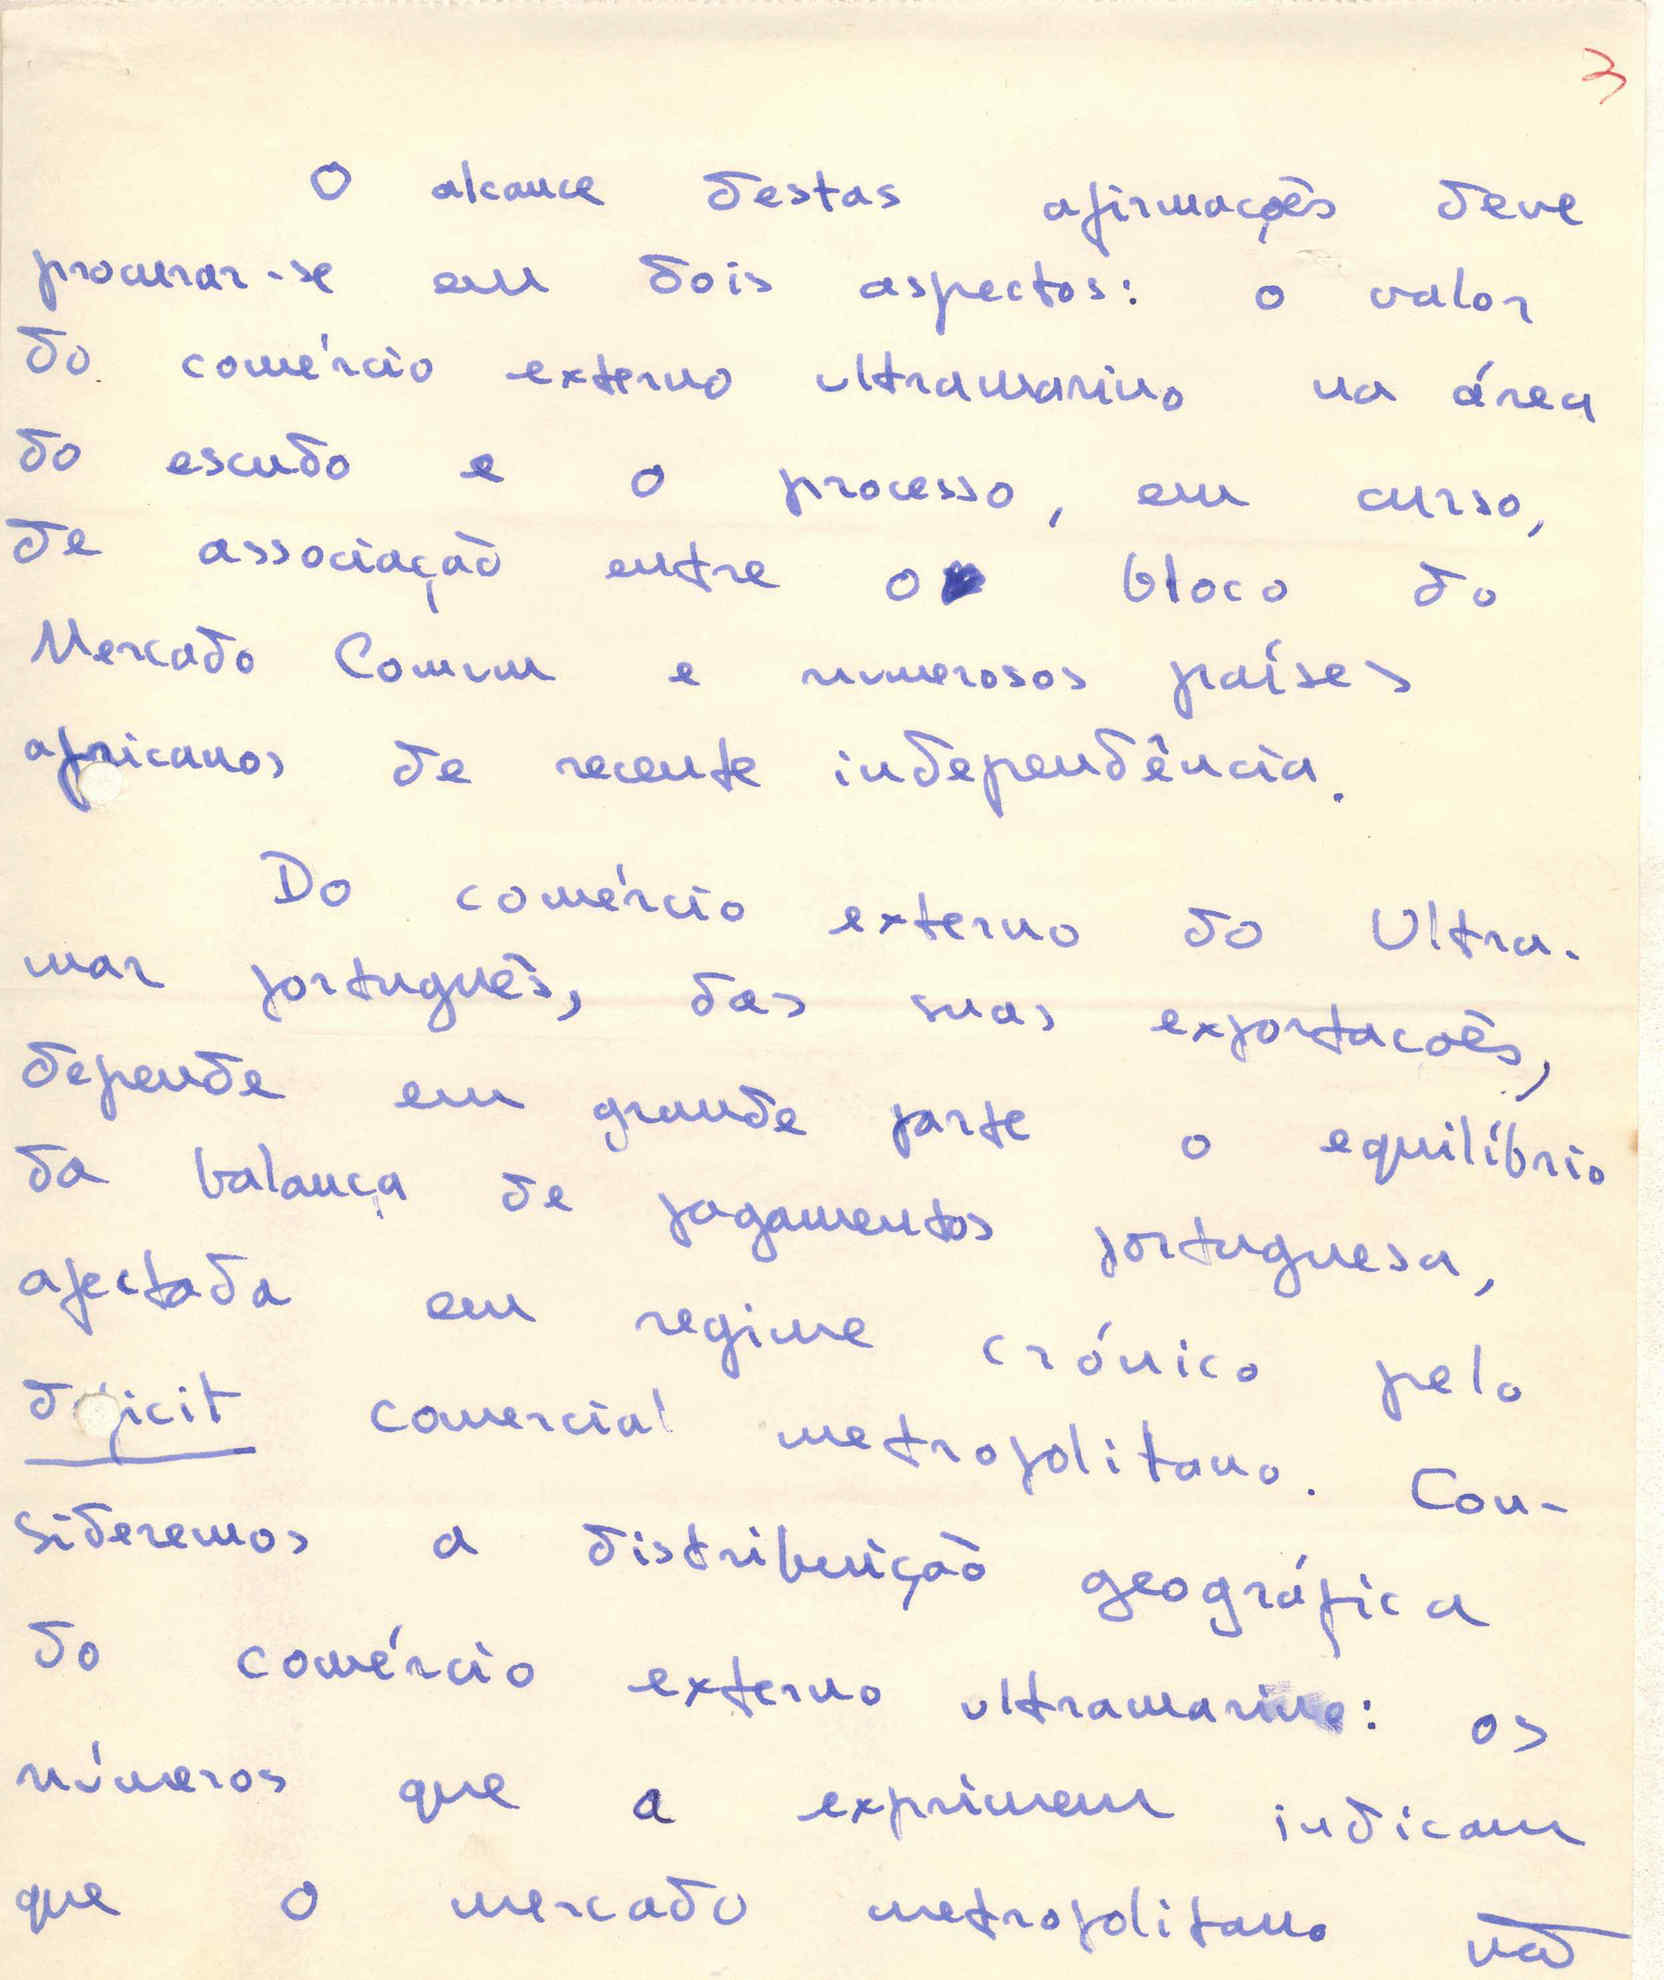 3
O alcance destas afirmações deve
procurar-se em dois aspectos: o valor
do comércio externo ultramarino na área
do escudo e o processo, em curso,
de associação entre o bloco do
Mercado Comum e numerosos países
africanos de recente independência.
Do comércio externo do Ultra-
mar português, das suas exportacões,
depende em grande parte o equilíbrio
da balança de pagamentos portuguesa,
afectada em regime crónico pelo
déficit comercial metropolitano. Con-
sideremos a distribuição geográfica
do comércio externo ultramarino: os
números que a exprimem indicam
que o mercado metropolitano não